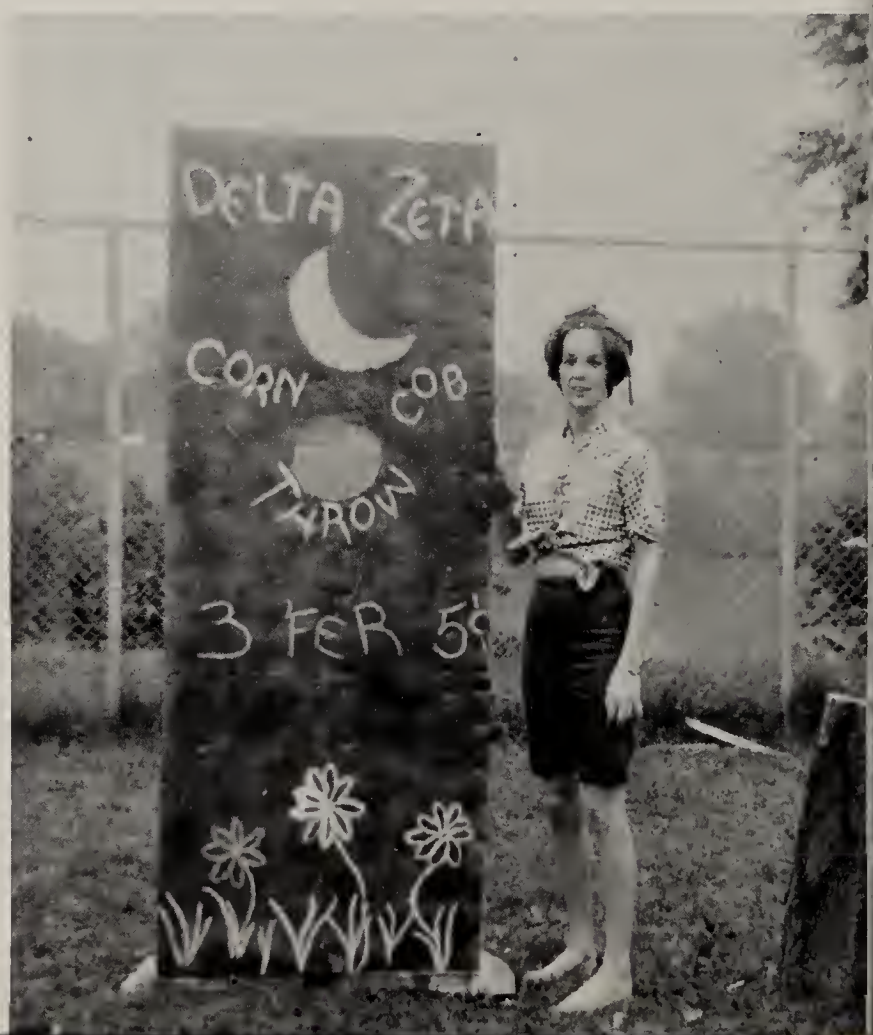 DELTA ZETA
CORN COB
THROW
3 FER 5¢